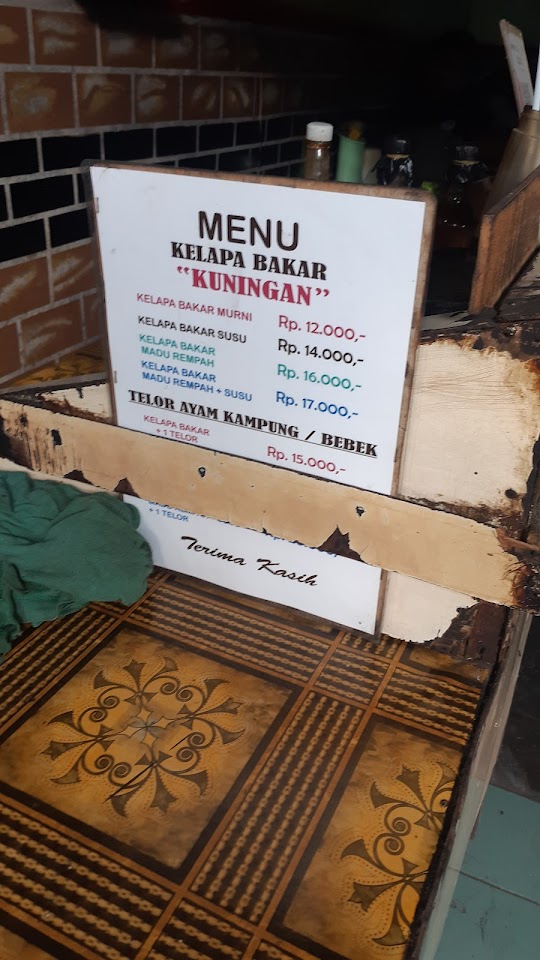 MENU
KELAPA BAKAR
“KUNINGAN”
KELAPA BAKAR MURNI Rp. 12.000,-
KELAPA BAKAR SUSU Rp. 14.000,-
KELAPA BAKAR
MADU REMPAH Rp. 16.000,-
KELAPA BAKAR
MADU REMPAH + SUSU Rp. 17.000,-
TELOR AYAM KAMPUNG / BEBEK
KELAPA BAKAR
+ 1 TELOR Rp. 15.000,-
+ 1 TELOR
Terima Kasih